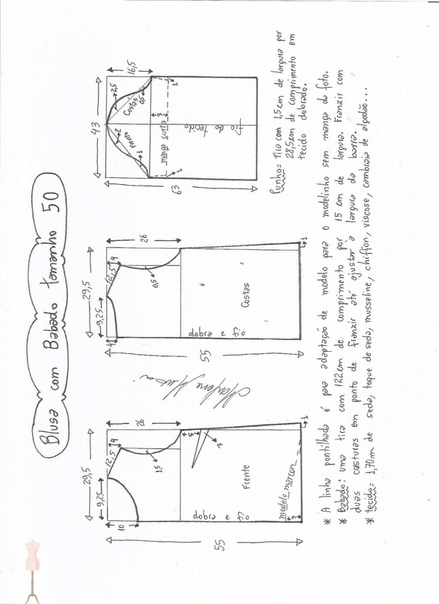 Blusa com Babado tamanho 50
29,5
9,25
12,5
9
10
28
15
5
3
1
55
Frente
dobra e fio
modelo marcan
2
29,5
9,25
12,5
9
4
26
0,5
55
Costas
dobra e fio
1
43
16,5
2,5
2
Costas
Frente
0,5
1
3
1
63
fio do tecido
Punho: tira com 1,5cm de largura por
28,5cm de comprimento em
tecido dobrado.
* A linha pontilhada é para adaptação de modelo para o modelinho sem manga da foto.
* Babado: uma tira com 122cm de comprimento por 15 cm de largura. Franzir com
duas costuras em ponto de franzir até ajustar a largura da barra.
* tecido: 1,70m de seda, toque de seda, musseline, chiffon, viscose, cambraia de algodão...